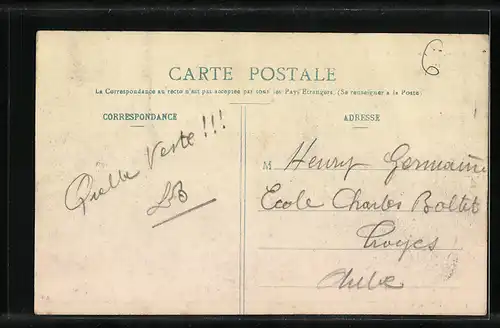 6
CARTE POSTALE
La Correspondance au recto n'est pas acceptée par tous les Pays Étrangers. (Se renseigner à la Poste)
CORRESPONDANCE
ADRESSE
Quelle Veste !!!
LB
M Henry Germaine
Ecole Charles Baltet
Troyes
Aube